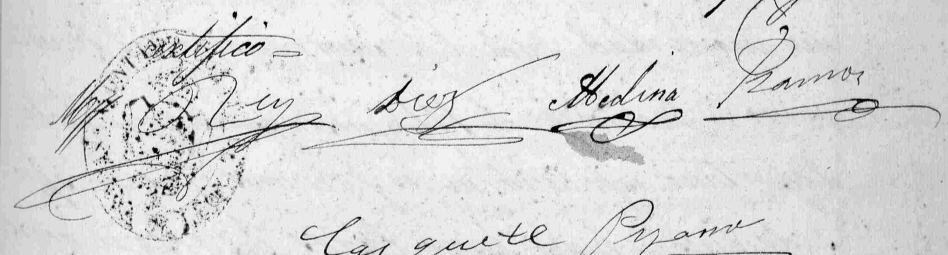 certifico=
Rey Diez Medina Ramos
Casquete Pyano